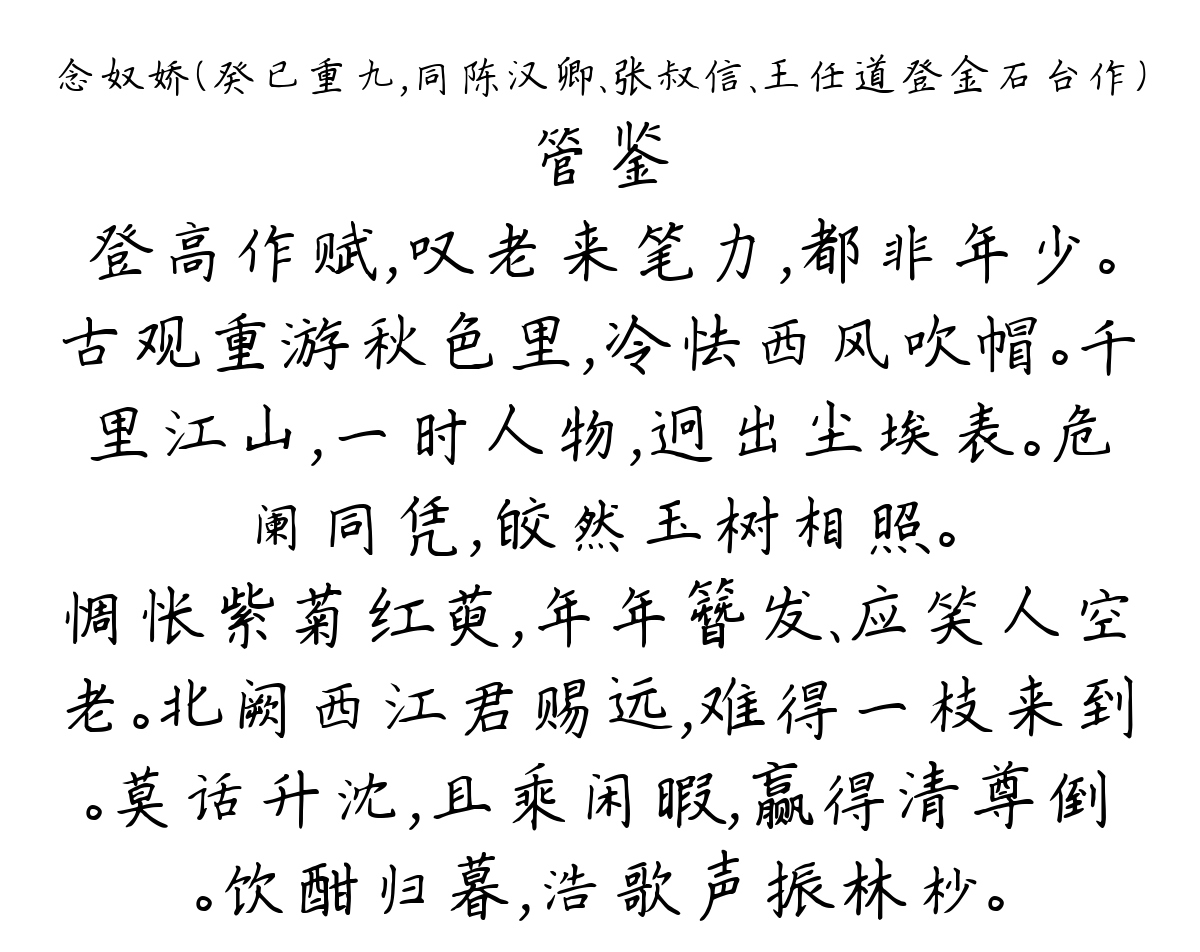 念奴娇(癸已重九,同陈汉卿、张叔信、王任道登金石台作)
管鉴
登高作赋,叹老来笔力,都非年少。
古观重游秋色里,冷怯西风吹帽。千
里江山,一时人物,迥出尘埃表。危
阑同凭,皎然玉树相照。
惆怅紫菊红萸,年年簪发、应笑人空
老。北阙西江君赐远,难得一枝来到
。莫话升沈,且乘闲暇,赢得清尊倒
。饮酣归暮,浩歌声振林杪。